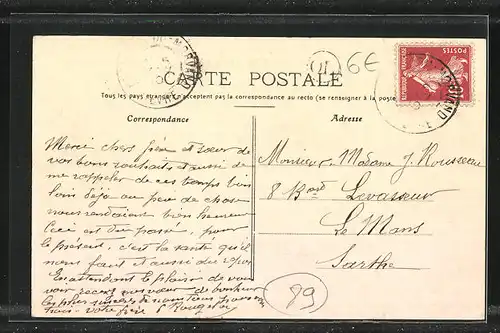 CARTE POSTALE
Tous les pays étrangers n'acceptent pas la correspondance au recto (se renseigner à la poste
Correspondance
Adresse
Merci chers frère et sœur de
vos bons souhaits et aussi de
me rappeler de ces temps bien
loin déjà ou peu de chose
nous rendaient bien heureux
Ceci est du passé, pour
le présent, c'est la santé qu'il
nous faut et aussi du repos
En attendant le plaisir de vous
voir recevez nos vœux de bonheur
Monsieur & Madame J. Rousseau
8 Bard Levasseur
Le Mans
Sarthe
89
6€
POSTES